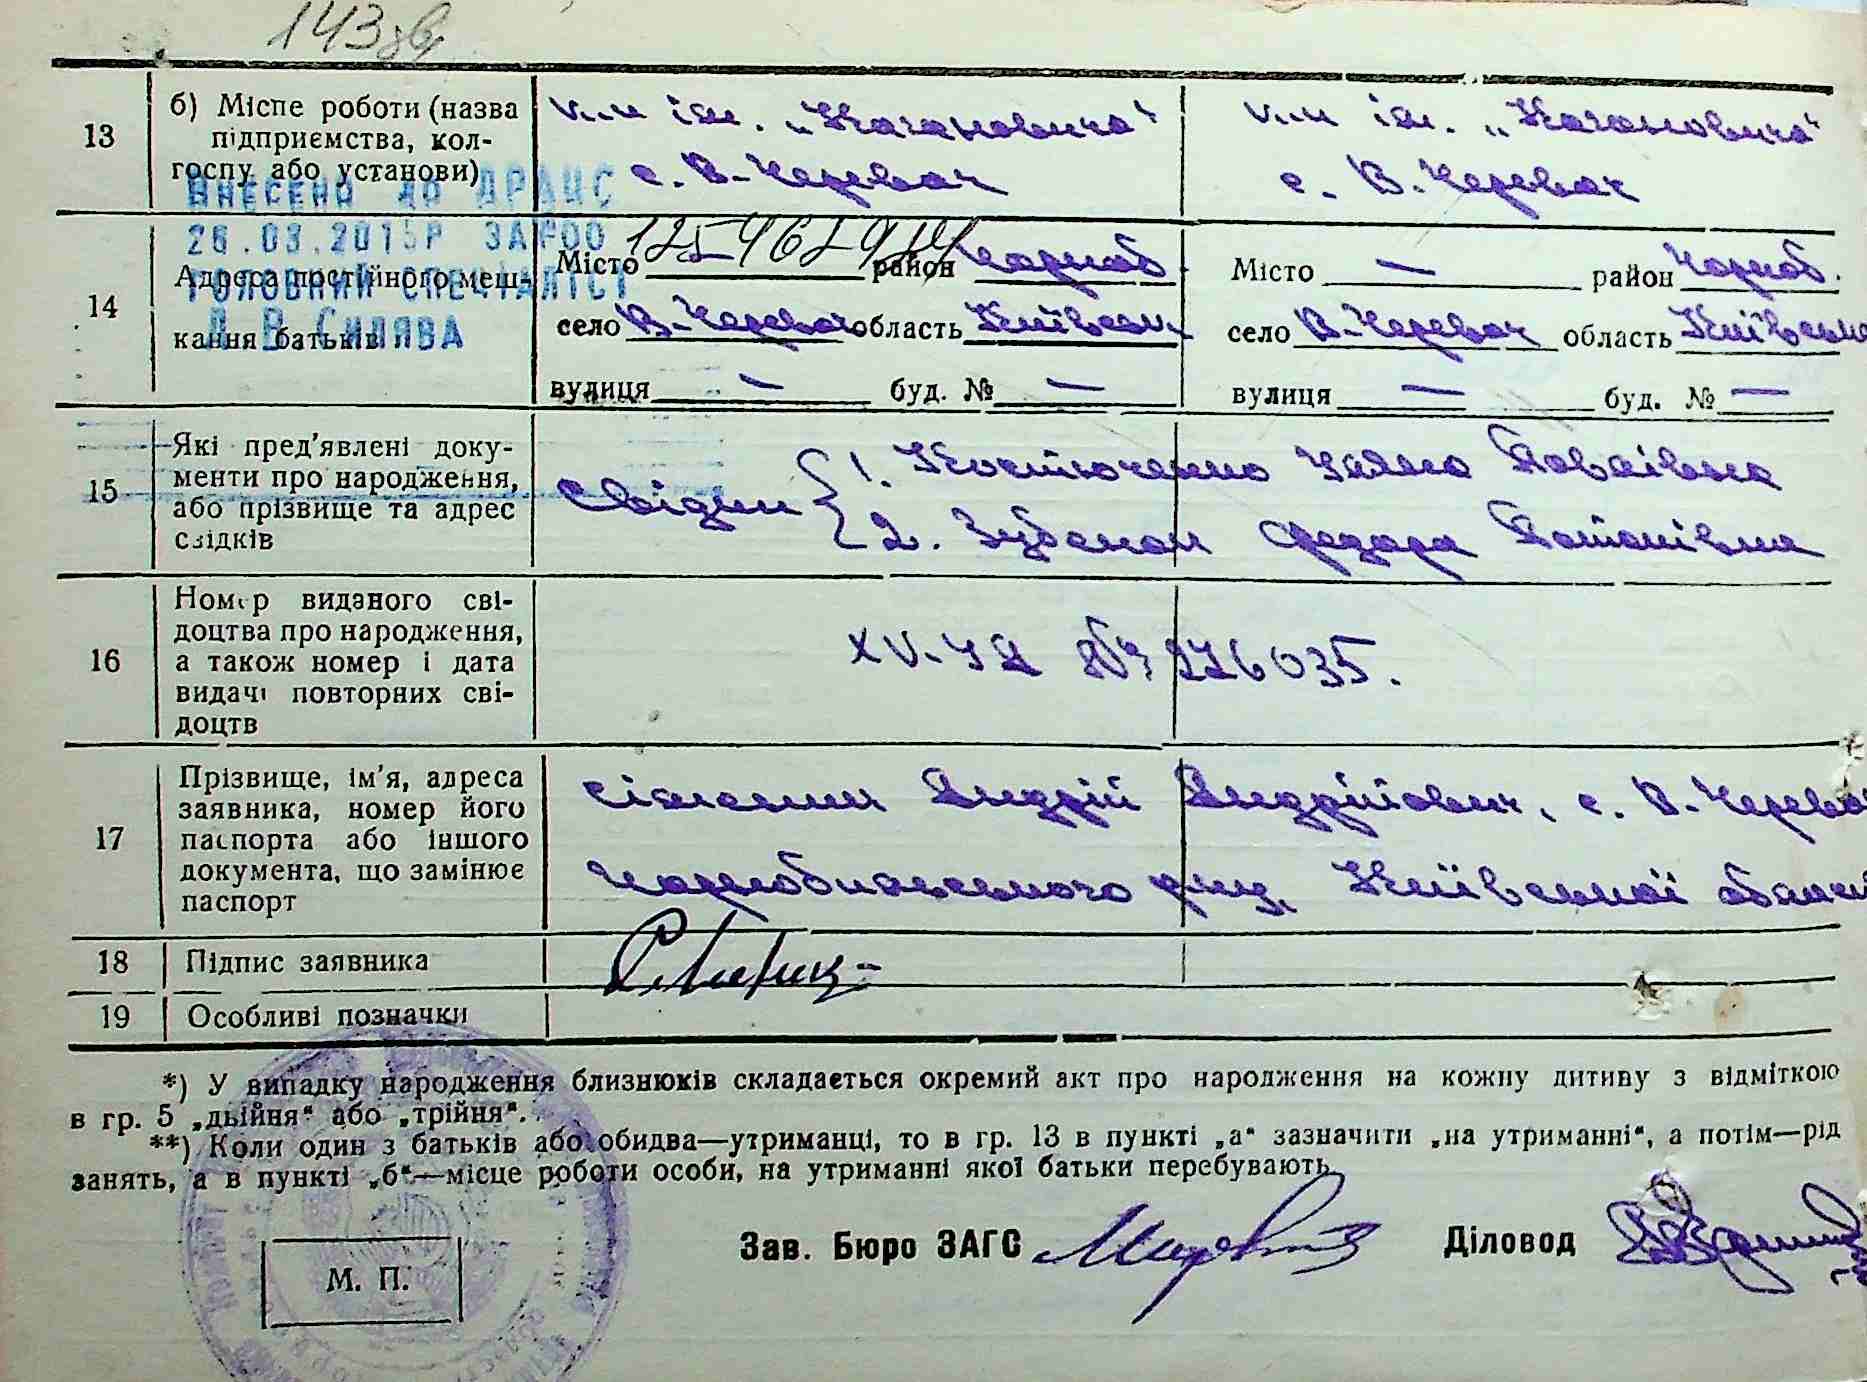 143зв
13
б) Місце роботи (назва
підприємства, кол-
госпу або установи)
к-п ім. „Кагановича"
с. В-Черевач
к-п ім. „Кагановича"
с. В. Черевач
ВНЕСЕНО ДО ДРАЦС
26.03.2015Р ЗА №00 12549629
ГОЛОВНИЙ СПЕЦІАЛІСТ
СИЛЯВА
14
Адреса постійного меш-
кання батьків
Місто — район Чорноб.
село В-Черевач область Київськ.
вулиця — буд. № —
Місто — район Чорноб.
село В-Черевач область Київськ
вулиця — буд. № —
15
Які пред'явлені доку-
менти про народження,
або прізвище та адрес
свідків
Свідки 1. Костюченко Уляна Павлівна
2. Зубенок Федора Потапівна
16
Номер виданого сві-
доцтва про народження,
а також номер і дата
видачі повторних сві-
доцтв
XV-УЯ № 276035.
17
Прізвище, ім'я, адреса
заявника, номер його
паспорта або іншого
документа, що замінює
паспорт
Андрій Андрійович, с. В-Черевач
Чорнобильського р-ну, Київської області
18
Підпис заявника
19
Особливі позначки
*) У випадку народження близнюків складається окремий акт про народження на кожну дитину з відміткою
в гр. 5 „двійня" або „трійня".
**) Коли один з батьків або обидва—утриманці, то в гр. 13 в пункті „а" зазначити „на утриманні", а потім—рід
занять, а в пункті „б"—місце роботи особи, на утриманні якої батьки перебувають.
Зав. Бюро ЗАГС
Діловод
М. П.